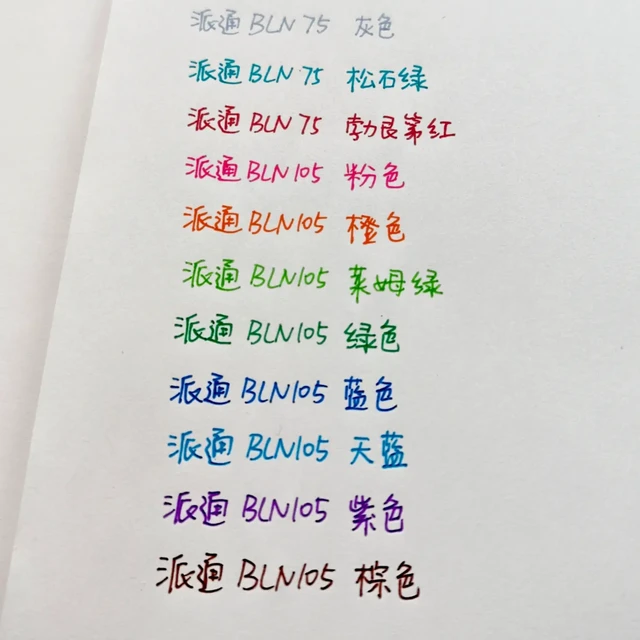 派通 BLN 75 灰色
派通 BLN 75 松石绿
派通 BLN 75 勃艮第红
派通 BLN 105 粉色
派通 BLN105 橙色
派通 BLN105 莱姆绿
派通 BLN105 绿色
派通 BLN105 蓝色
派通 BLN105 天蓝
派通 BLN105 紫色
派通 BLN105 棕色